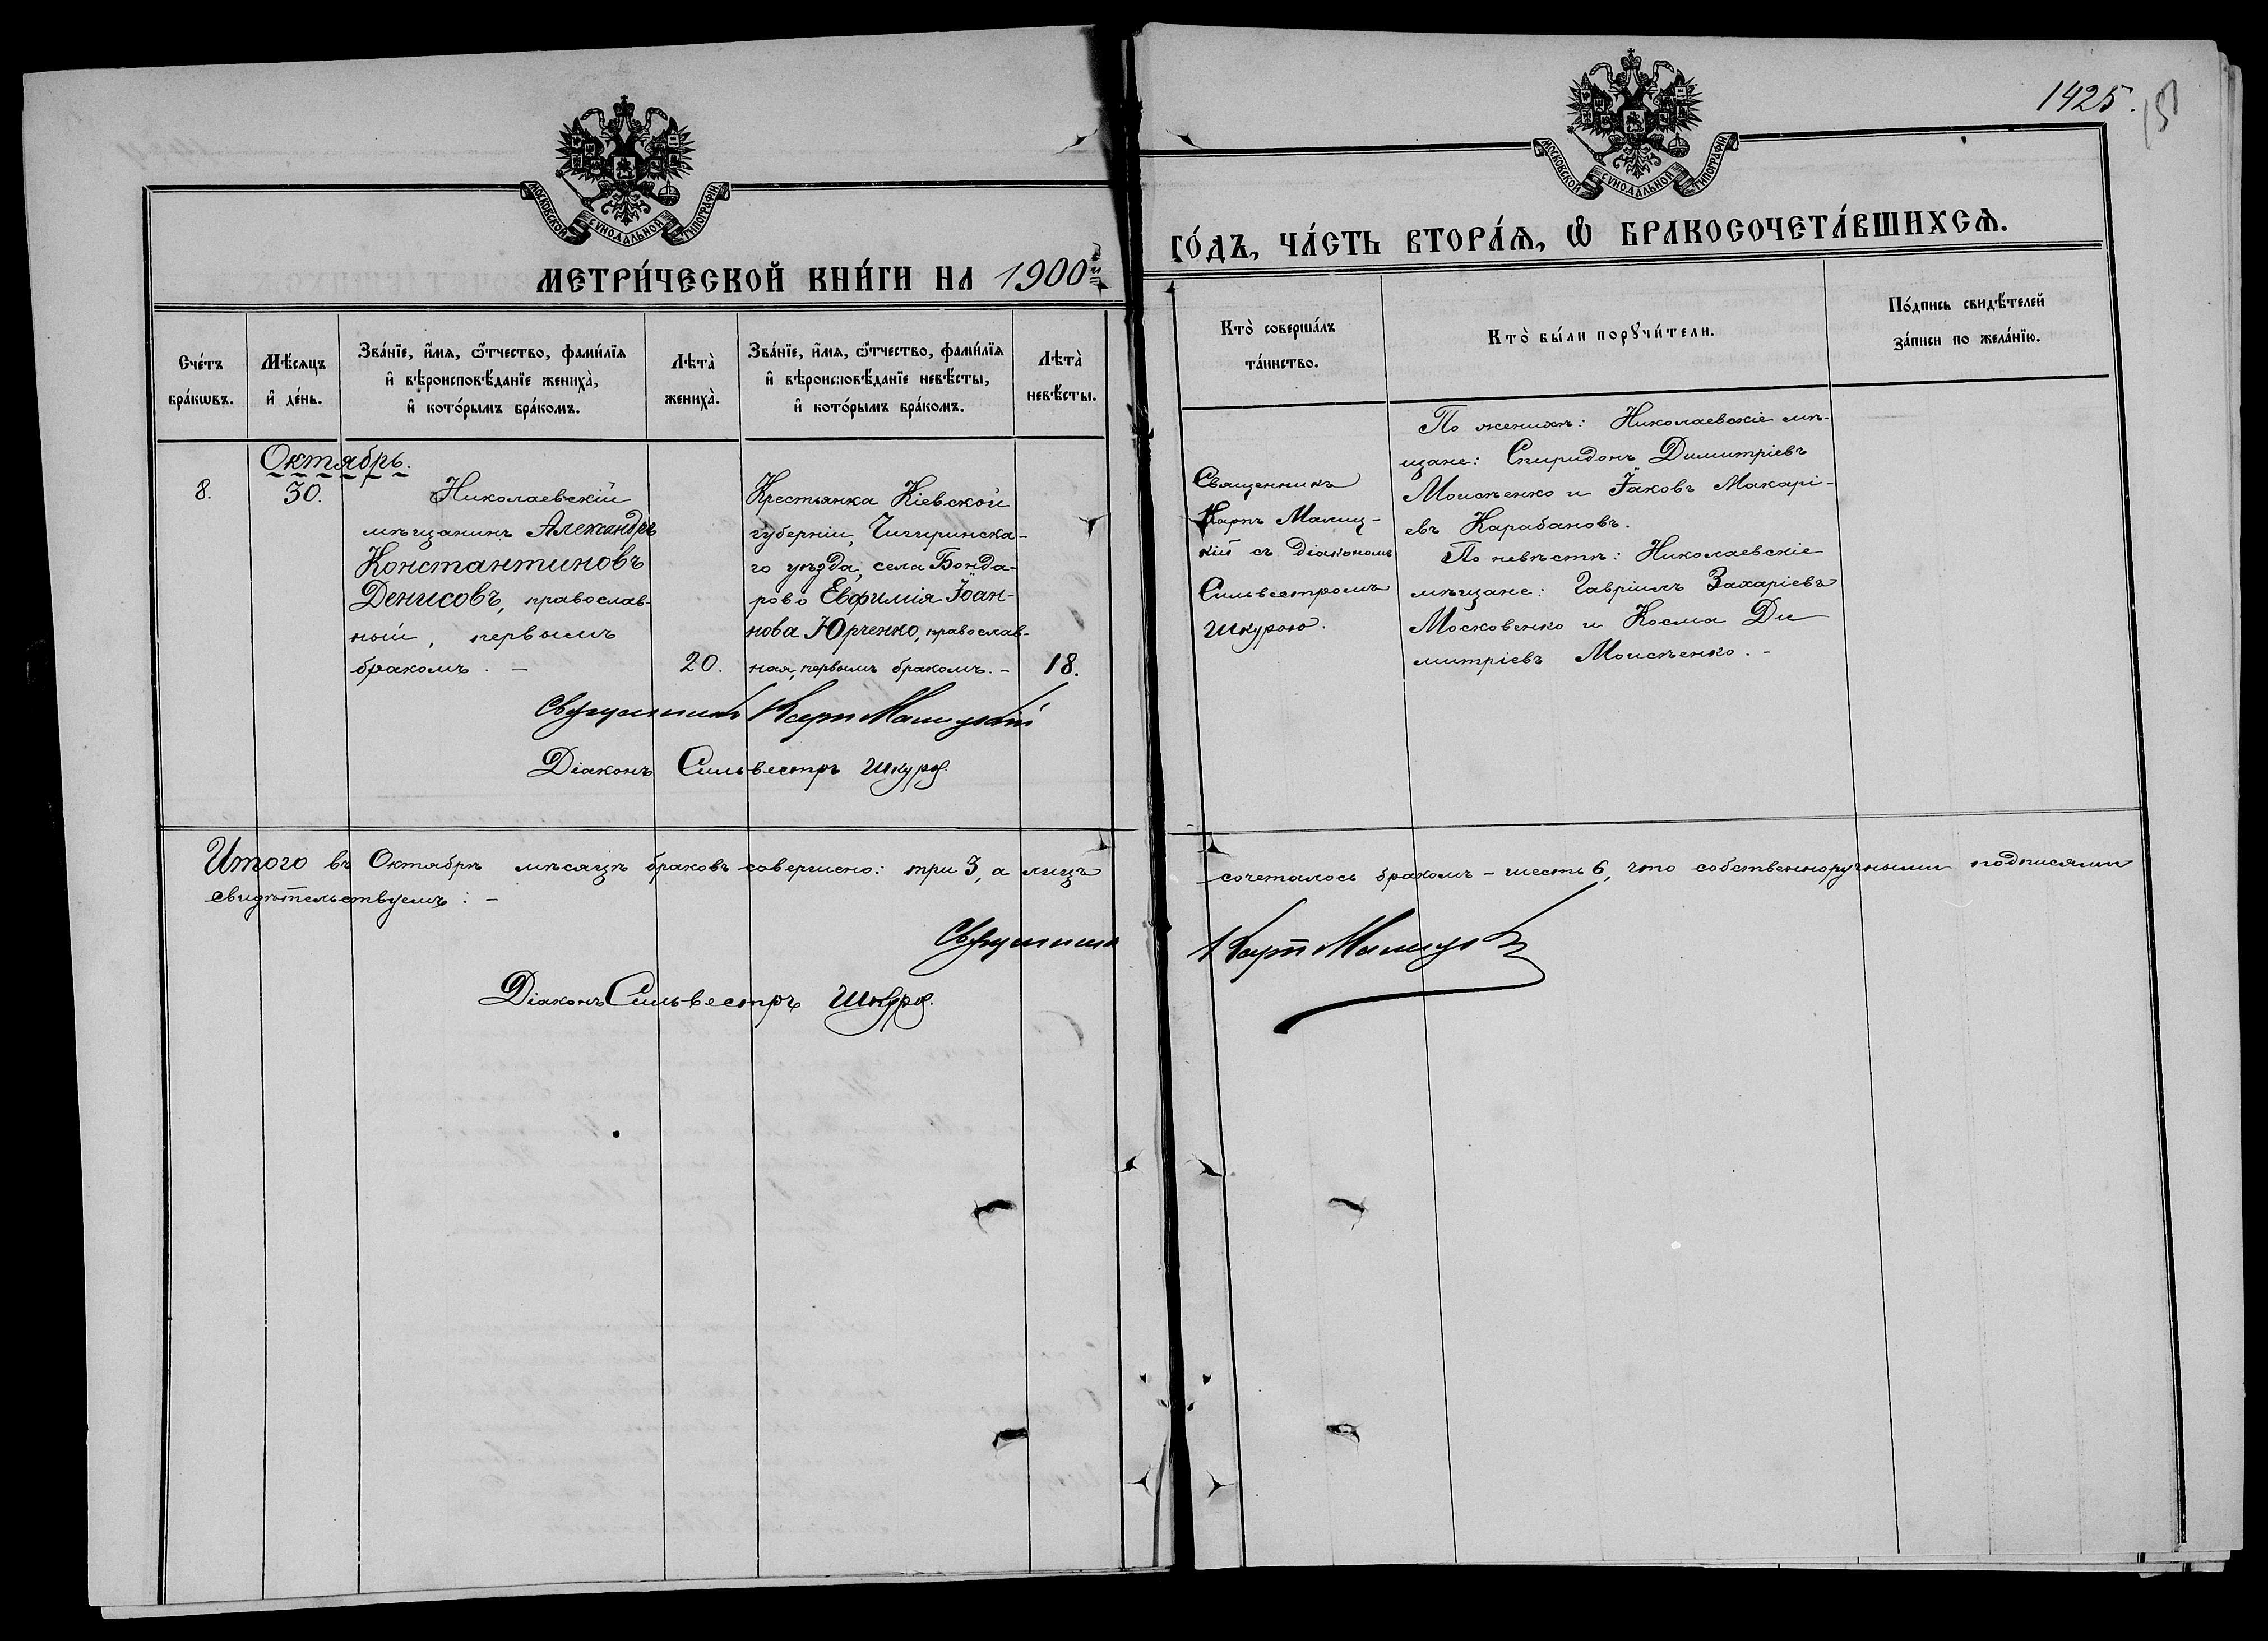 1425.
МОСКОВСКОЙ СУНОДАЛЬНОЙ ТИПОГРАФІИ
МОСКОВСКОЙ СУНОДАЛЬНОЙ ТИПОГРАФІИ
МЕТРИ́ЧЕСКОЙ КНИ́ГИ НА 1900й
ГО́ДЪ, ЧА́СТЬ ВТОРА́Ѧ, Ѽ БРАКОСОЧЕТА́ВШИХСѦ.
Сче́тъ
бра́кѡвъ.
Мѣ́сяцъ
и҆ де́нь.
Зва́нїе, и҆́мѧ, ѻ҆́тчество, фами́лїѧ
и҆ вѣроисповѣ́данїе жениха̀,
и҆ кото́рымъ бра́комъ.
Лѣта̀
жениха̀.
Зва́нїе, и҆́мѧ, ѻ҆́тчество, фами́лїѧ
и҆ вѣроисповѣ́данїе невѣ́сты,
и҆ кото́рымъ бра́комъ.
Лѣта̀
невѣ́сты.
Кто̀ соверша́лъ
та́инство.
Кто̀ бы́ли порꙋчи́тели.
По́дпись свидѣ́телей
за́писи по жела́нїю.
Октябрь.
8.
30.
Николаевскій
мѣщанинъ Александръ
Константиновъ
Денисовъ, православ-
ный, первымъ
бракомъ. –
20.
Крестьянка Кіевской
губерніи, Чигиринска-
го уѣзда, села Бонда-
рово Евфимія Іоан-
нова Юрченко, православ-
ная, первымъ бракомъ. –
18.
Священникъ
Карпъ Малиц-
кій съ діакономъ
Сильвестромъ
Шкурою.
По женихѣ: Николаевскіе мѣ-
щане: Спиридонъ Димитріевъ
Моисѣенко и Іаковъ Макарі-
евъ Карабановъ.
По невѣстѣ: Николаевскіе
мѣщане: Гавріилъ Захаріевъ
Московенко и Косма Ди
митріевъ Моисѣенко. –
Священникъ Карпъ Малицкій
Діаконъ Сильвестръ Шкура.
Итого въ Октябрѣ мѣсяцѣ браковъ совершено: три 3, а лицъ
сочеталось бракомъ – шесть 6, что собственноручными подписями
свидѣтельствуемъ: –
Священникъ Карпъ Малицкій
Діаконъ Сильвестръ Шкура.